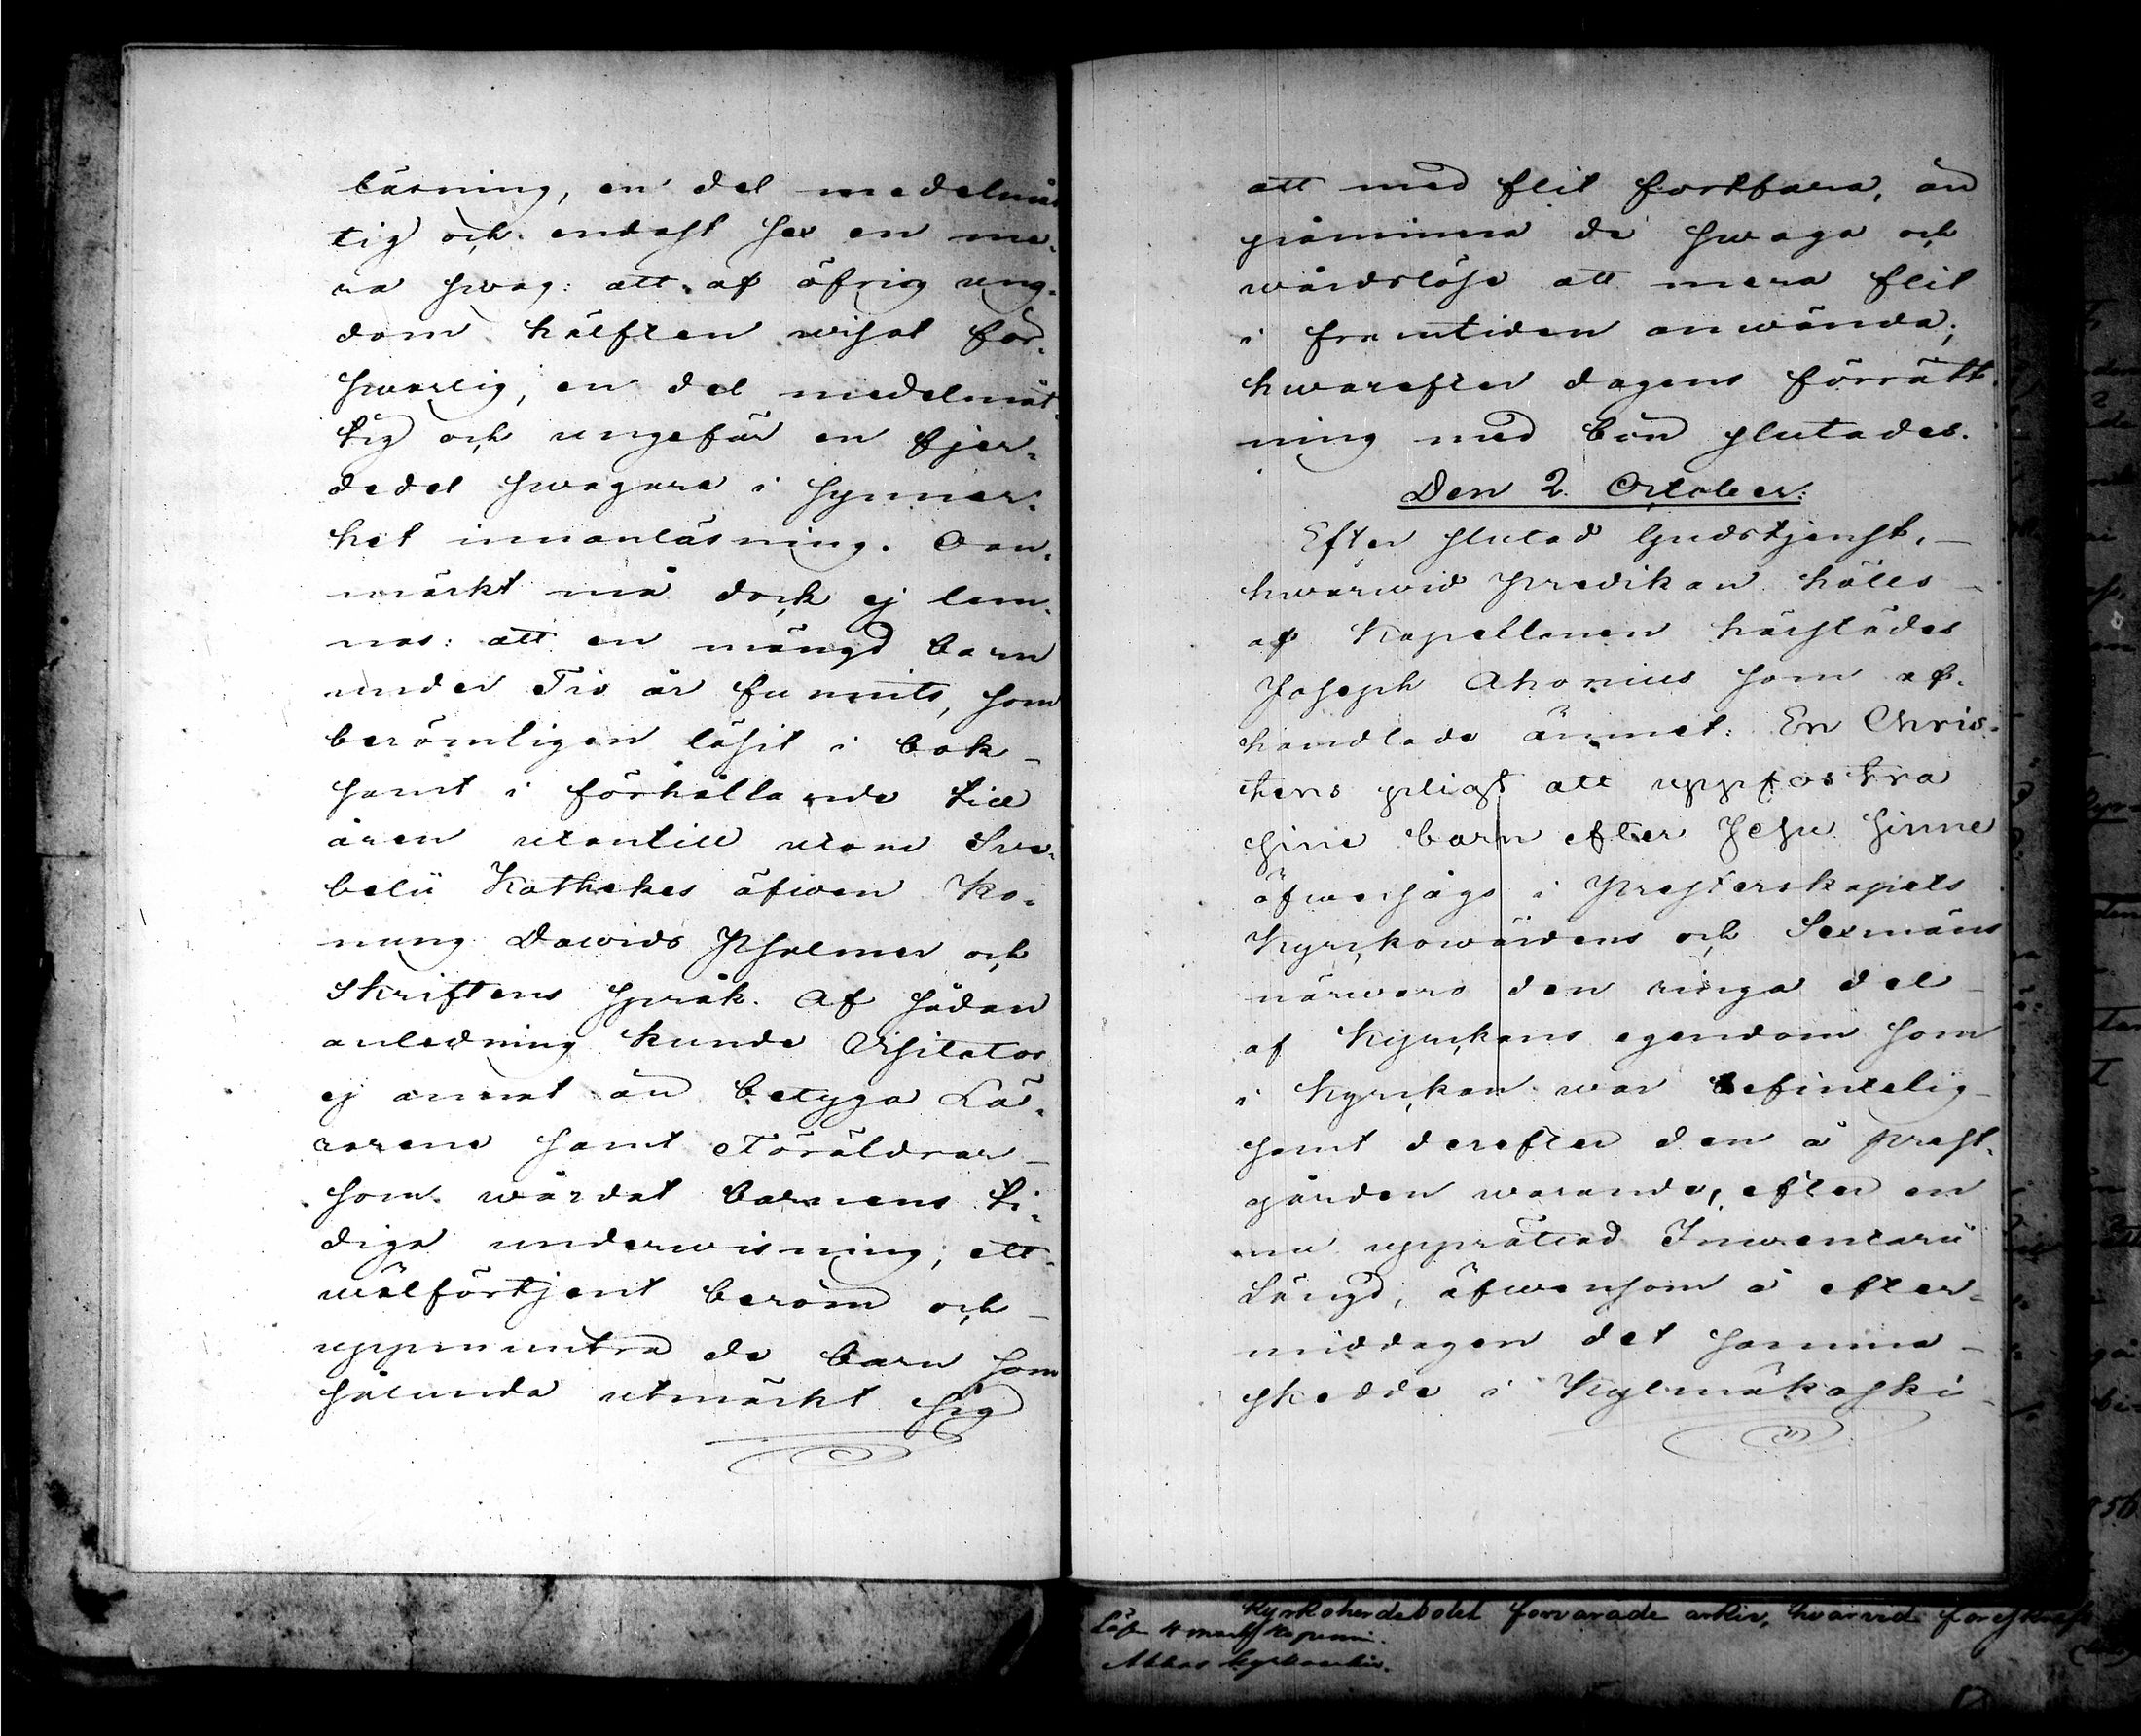 läsning, en del medelmåt
tig och endast sex en me-
ra swag: att af öfrig ung-
dom hälften wisat för-
swarlig, en del medelmåt-
tig och ungefär en fjer-
dedel swagare i synner-
het innanläsning. Oan-
märkt må dock ej lem-
nas: att en mängd barn
under Tio år funnits, som
berömligen läsit i bok –
samt i förhållande till
åren utantill utom Sve-
belii Kathekes äfwen Ko-
nung Dawids Psalmer och
Skriftens språk. Af sådan
anledning kunde Visitator
ej annat än betyga Lä-
rarene samt Föräldrar –
som wårdat barnens ti-
diga underwisning, ett
wälförtjent beröm och –
uppmuntra de barn som
sålunda utmärkt sig
att med flit fortfara, än
påminna de swaga och
wårdslöse att mera flit
i framtiden anwända;
hwarefter dagens förrätt-
ning med bön slutades.
Den 2. October:
Efter slutad Gudstjenst, –
hwarwid predikan hölls –
af Kapellanen härstädes
Joseph Ahonius som af-
handlade ämnet: En Chris-
tens pligt att uppfostra
sine barn efter Jesu sinne
öfwersågs i Presterskapets
Kyrckowärdens och Sexmäns
närwaro den ringa del –
af Kyrckans egendom som
i Kyrckan war befintelig –
samt derefter den å prest-
gården warande, efter en
nu upprättad Inwentarii
Längd, äfwensom å efter-
middagen det samma –
skedde i Kylmäkoski –
Kyrkoherdebolet forvarade arkiv, hvarvid